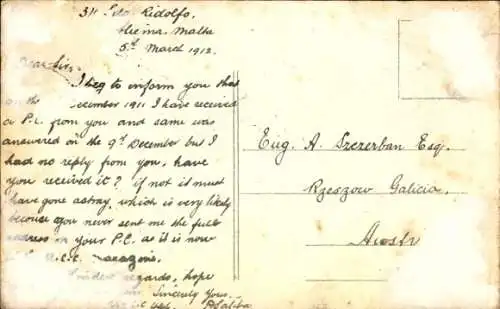 311 Ridolfo.
Sliema. Malta
5th March 1912.
Dear Sir.
I beg to inform you that
on the December 1911 I have received
a P.C. from you and same was
answered on the 9th December but I
had no reply from you, have
you received it? if not it must
have gone astray, which is very likely
because you never sent me the full
address on your P.C. as it is now
regards, hope
Sincerely Yours.
Eug. A. Szczerban Esq.
Rzeszow Galicia.
Austr